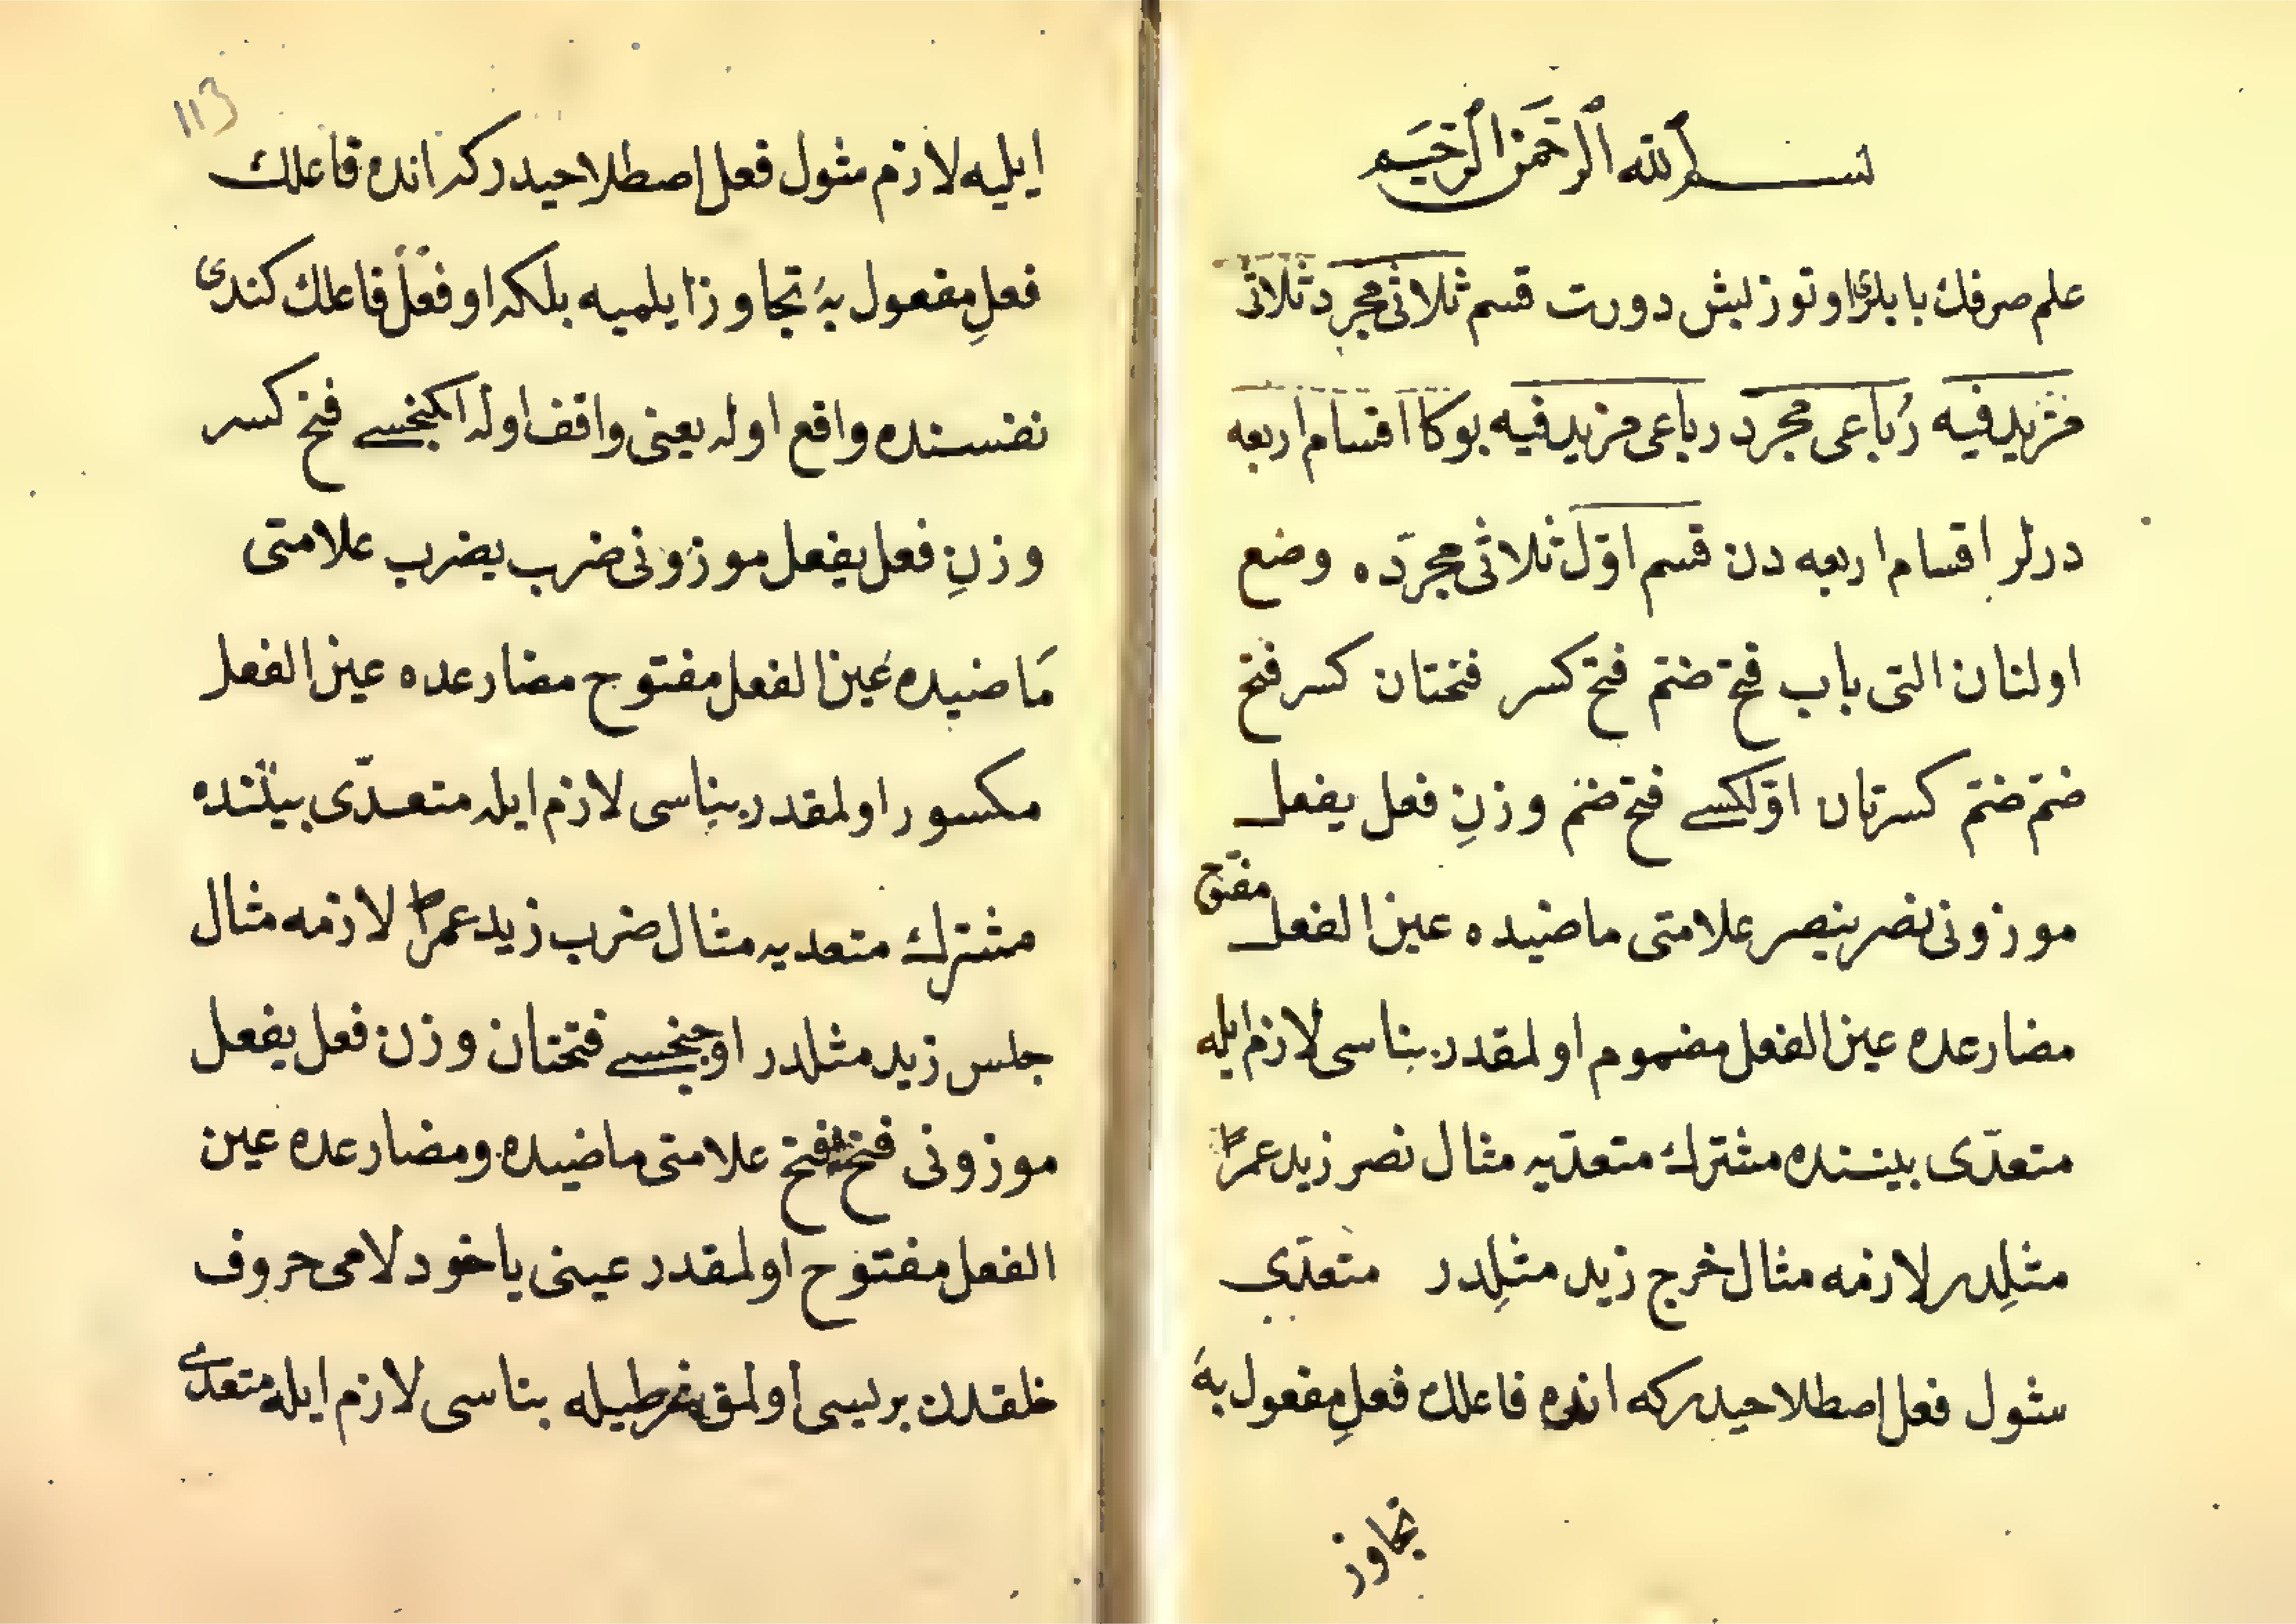 بسم الله الرحمن الرحيم
علم صرفك بابلرى اوتوز بش دورت قسم ثلاثى مجرد ثلاثى
مزيد فيه رُباعى مجرد رباعى مزيد فيه بوكا اقسام اربعه
درلر اقسام اربعه دن قسم اوّل ثلاثى مجرّده وضع
اولنان التى باب فتح ضمّ فتح كسر فتحتان كسر فتح
ضمّ ضمّ كسرتان اوّلكسى فتح ضم وزنِ فعل يفعل
موزونى نصر ينصر علامتى ماضيده عين الفعل مفتوح
مضارعده عين الفعل مضموم اولمقدر بناسى لازم ايله
متعدّى بيننده مشترك متعدّيه مثال نصر زيد عمراً
مثلِدر لازمه مثال خرج زيد مثلِدر متعدّى
شول فعل اصطلاحيدركه انده فاعلك فعلِ مفعول بهَ
تجاوز
113
ايليه لازم شول فعل اصطلاحيدركه انده فاعلك
فعلِ مفعول بهَ تجاوز ايلميه بلكه او فعل فاعلك كندى
نفسنده واقع اوله يعنى واقف اوله ايكنجسى فتح كسر
وزنِ فعل يفعل موزونى ضرب يضرب علامتى
مَاضيده عين الفعل مفتوح مضارعده عين الفعل
مكسور اولمقدر بناسى لازم ايله متعدّى بيننده
مشترك متعديه مثال ضرب زيد عمراً لازمه مثال
جلس زيد مثلدر اوچنجسى فتحتان وزن فعل يفعل
موزونى فتح يفتح علامتى ماضيده ومضارعده عين
الفعل مفتوح اولمقدر عينى ياخود لامى حروف
خلقدن بريسى اولمق شرطيله بناسى لازم ايله متعدى